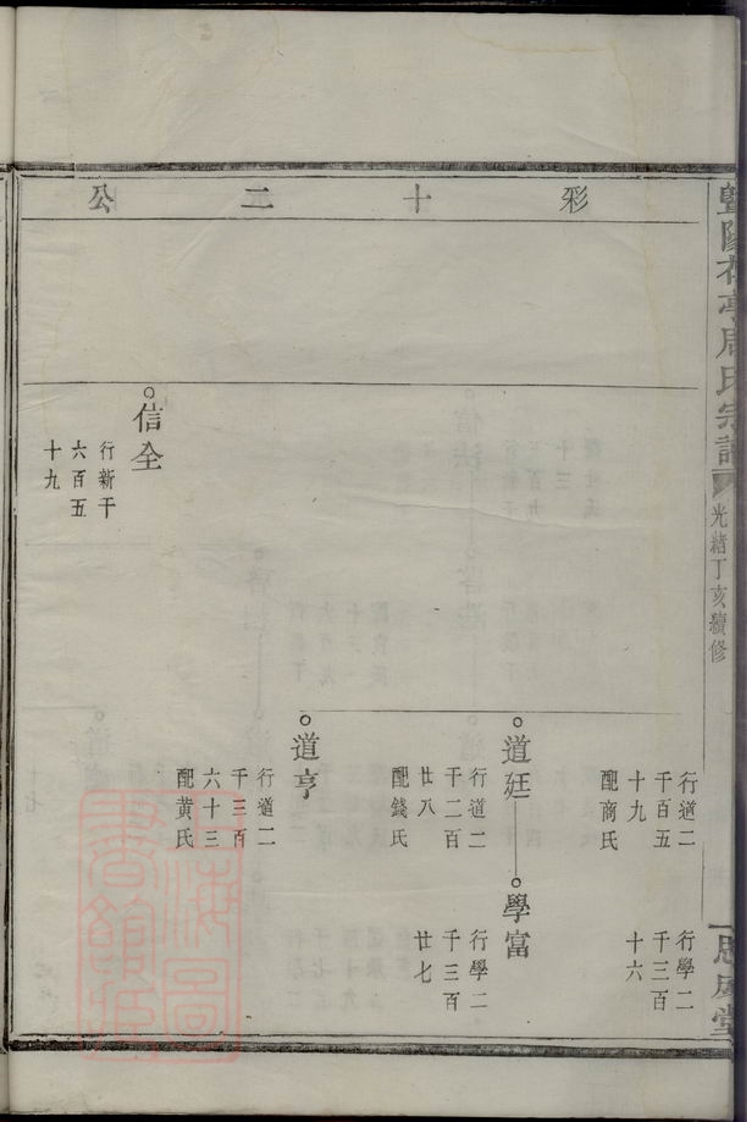 暨陽亭周氏宗譜
光緒丁亥續修
堂
彩十二公
行道二
千百五
十九
配商氏
行學二
千三百
十六
道廷
行道二
千二百
廿八
配錢氏
學富
行學二
千三百
廿七
道亨
行道二
千三百
六十三
配黃氏
信全
行新千
六百五
十九
上海圖
書館藏